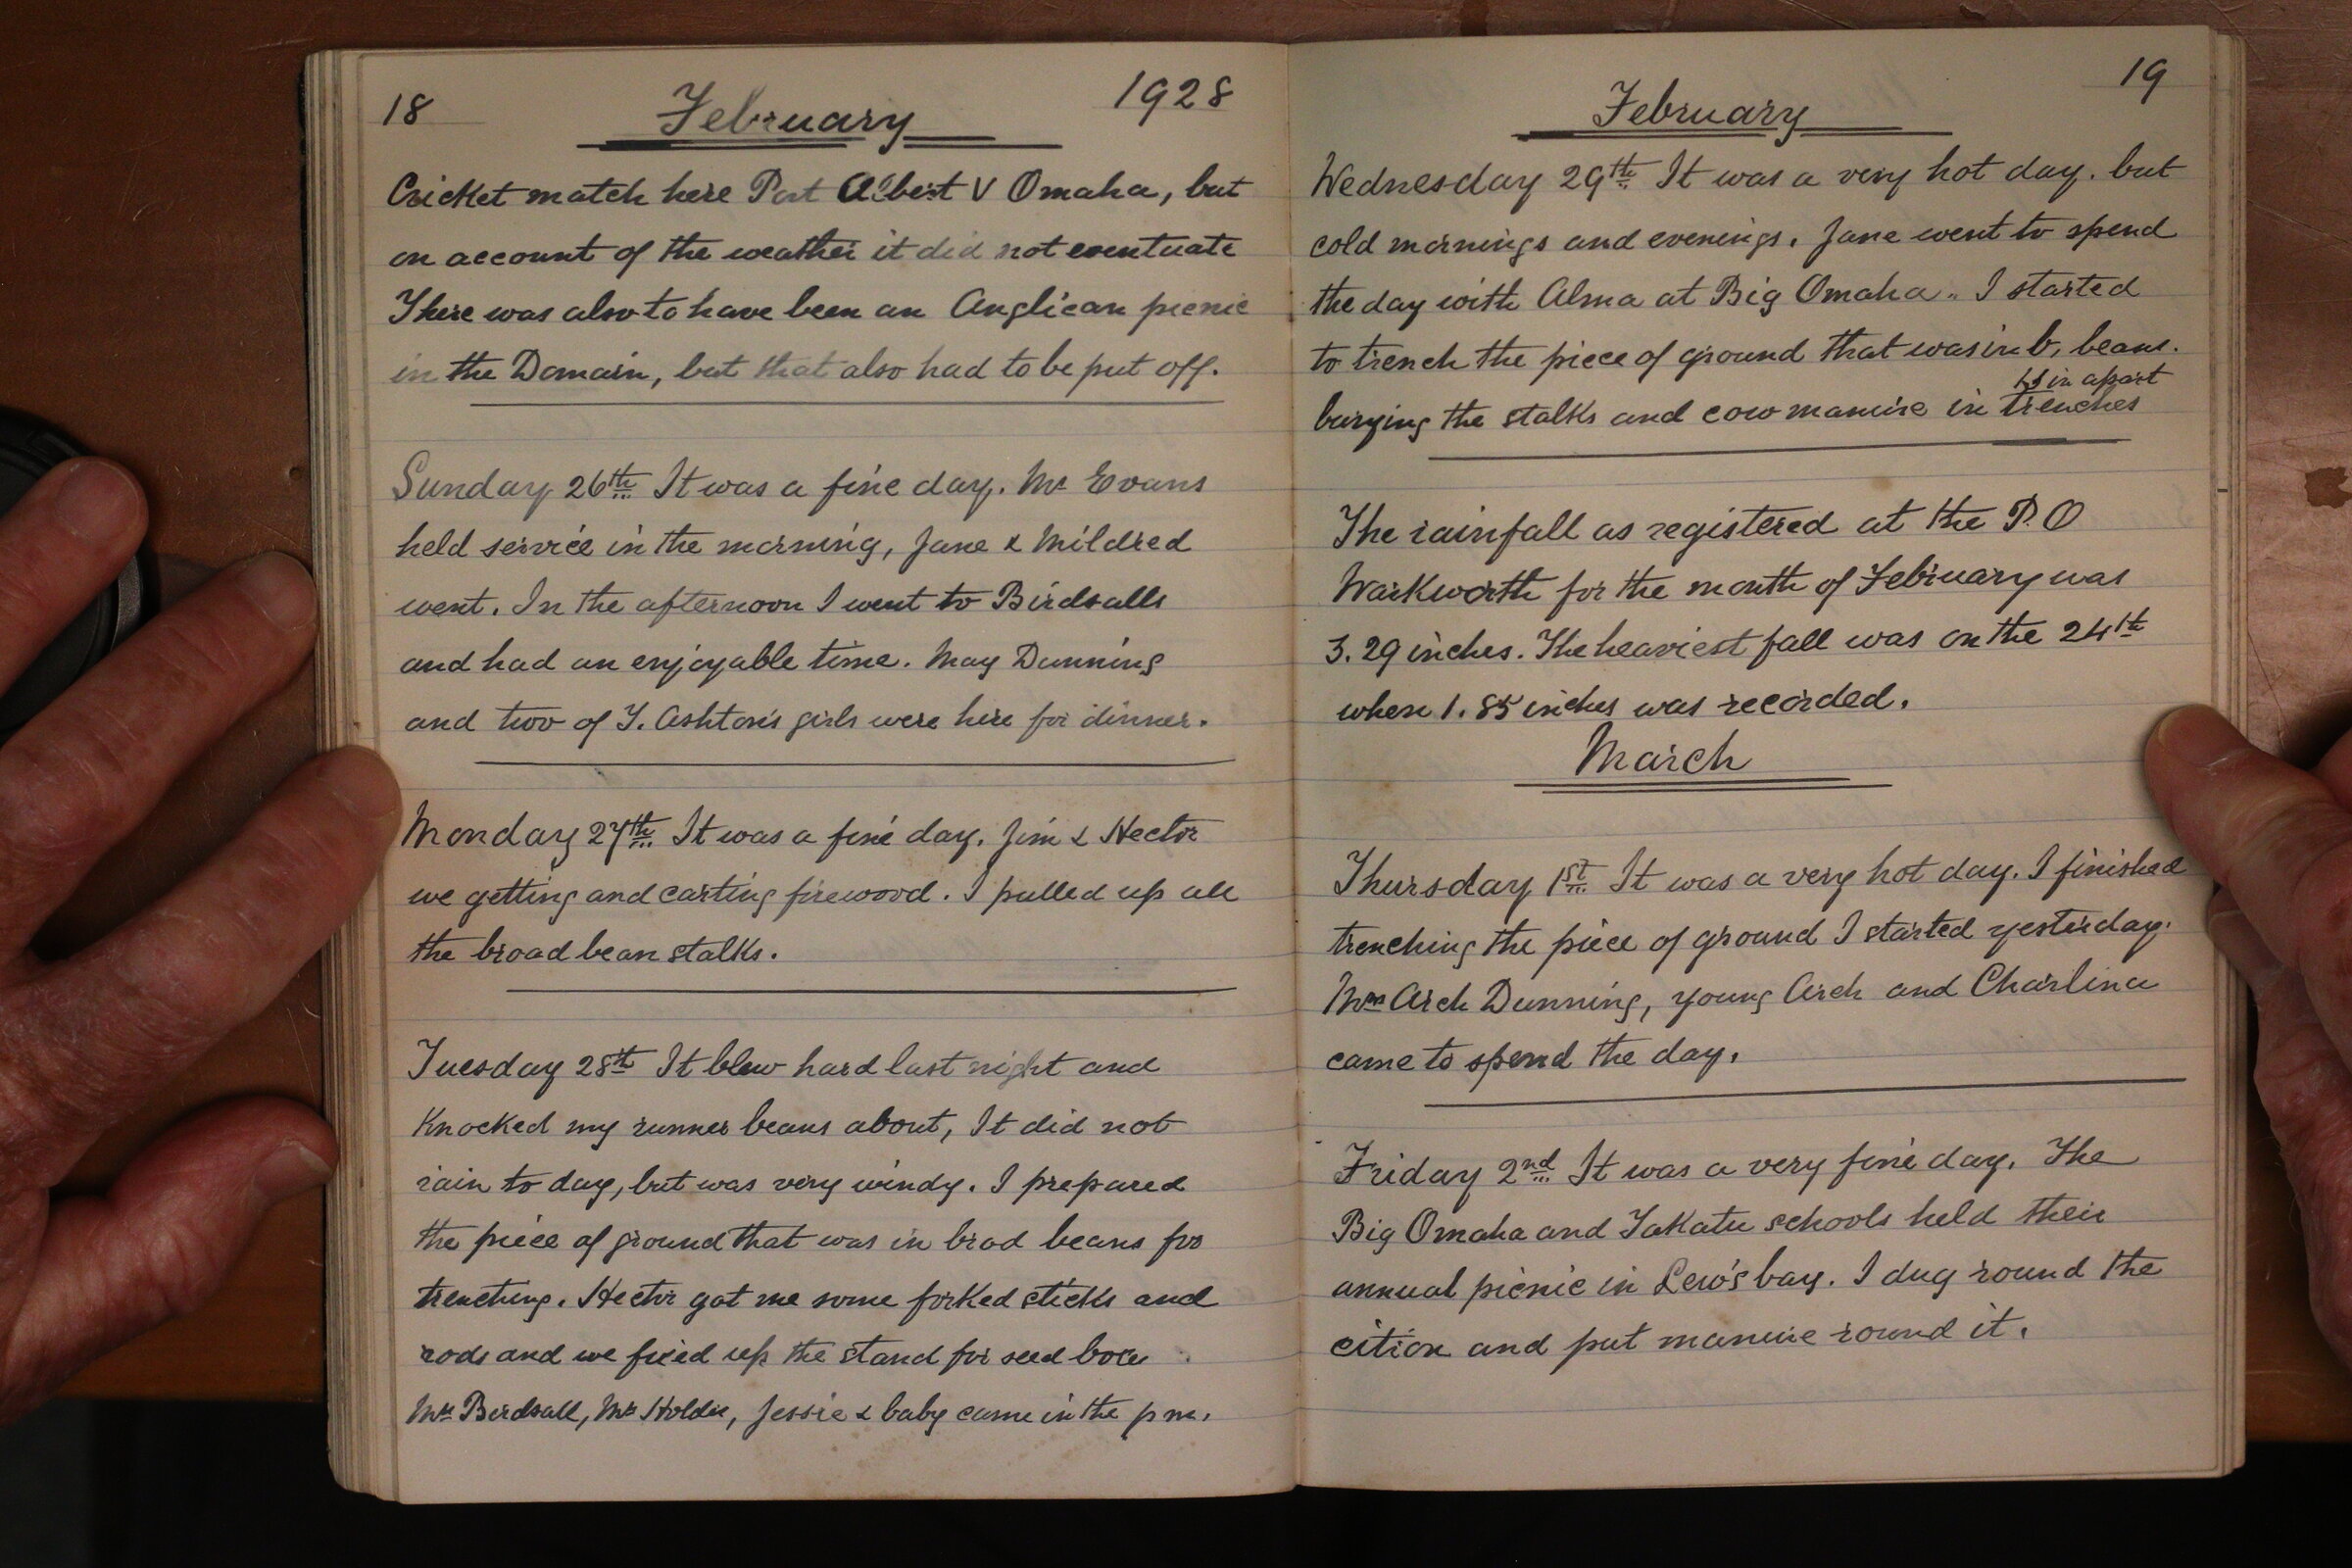 18 February 1928
Cricket match here Port Albert V Omaha, but
on account of the weather it did not eventuate
There was also to have been an Anglican picnic
in the Domain, but that also had to be put off.
Sunday 26th It was a fine day. Mr Evans
held service in the morning, Jane & Mildred
went. In the afternoon I went to Birdsalls
and had an enjoyable time. May Dunning
and two of T. Ashton's girls were here for dinner.
Monday 27th It was a fine day. Jim & Hector
we getting and carting firewood. I pulled up all
the broad bean stalks.
Tuesday 28th It blew hard last night and
Knocked my runner beans about, It did not
rain to day, but was very windy. I prepared
the piece of ground that was in brod beans for
trenching. Hector got me some forked sticks and
rods and we fixed up the stand for seed
Mrs Birdsall, Mrs Holder, Jessie & baby came in the pm.
19
February
Wednesday 29th It was a very hot day. but
cold mornings and evenings. Jane went to spend
the day with Alma at Big Omaha. I started
to trench the piece of ground that was in b, beans.
in apart
burying the stalks and cow manure in trenches
The rainfall as registered at the P.O
Warkworth for the month of February was
3.29 inches. The heaviest fall was on the 24th
when 1.85 inches was recorded.
March
Thursday 1st It was a very hot day. I finished
trenching the piece of ground I started yesterday.
Mrs Arch Dunning, young Arch and Charlina
came to spend the day.
Friday 2nd It was a very fine day. The
Big Omaha and Takatu schools held their
annual picnic in Lew's bay. I dug round the
citron and put manure round it.